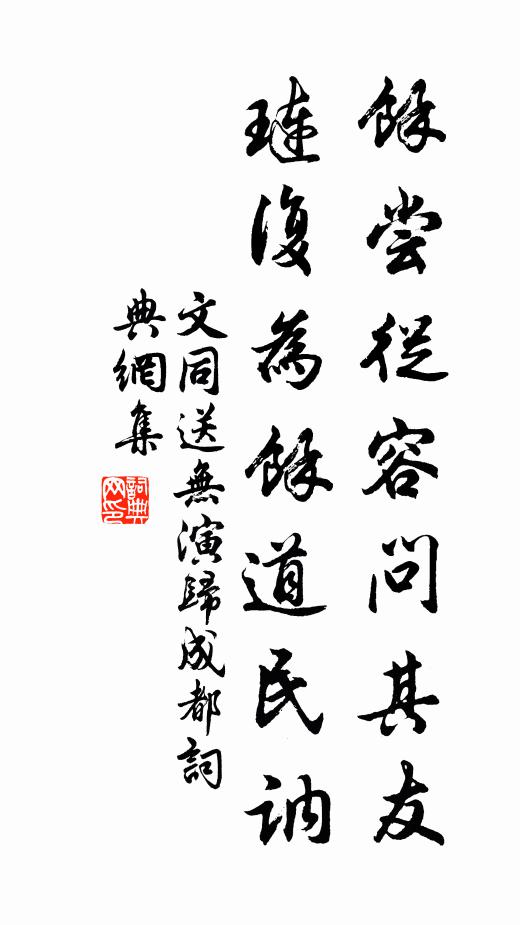 餘嘗從容問其友
璉復為餘道民訥
文同送無演歸成都詞
典網集
詞典網印